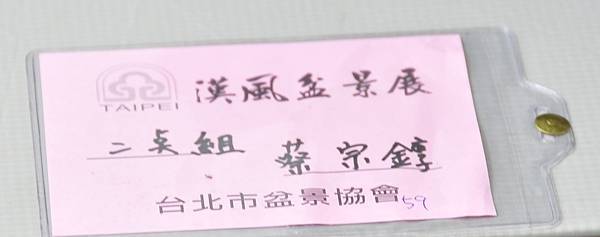 TAIPEI 漢風盆景展
二桌組 蔡宗錞
台北市盆景協會 59